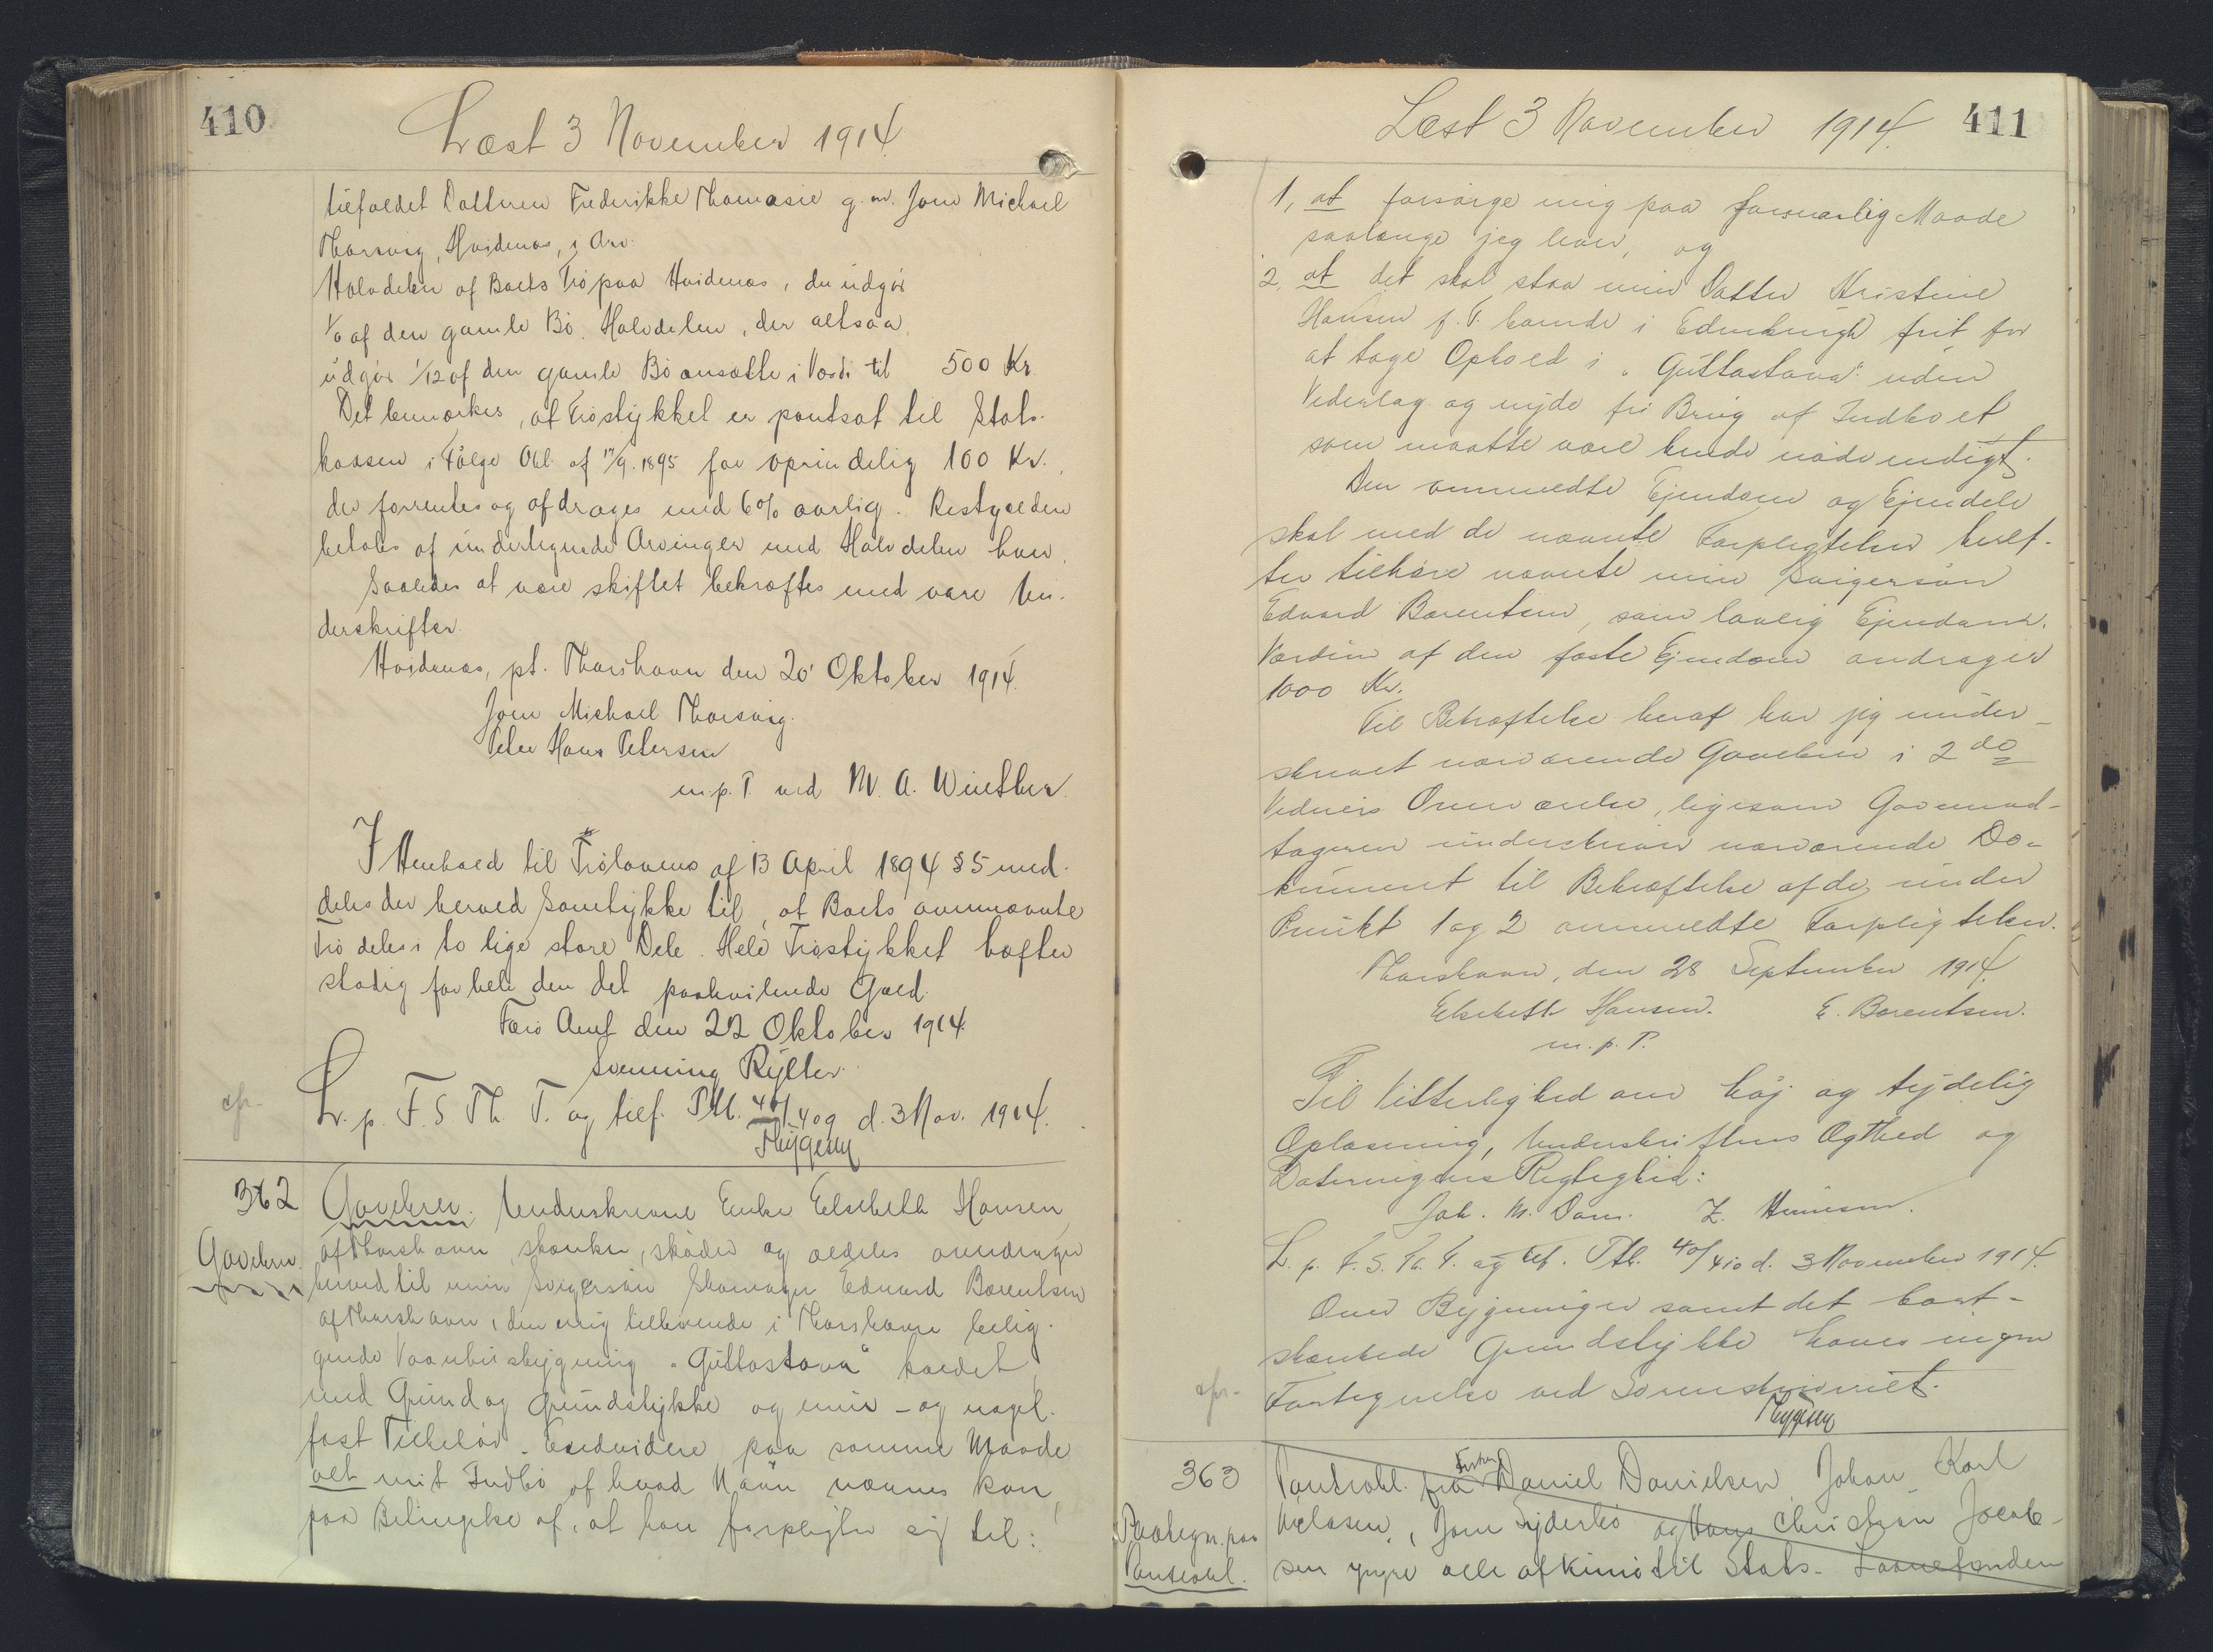 410
Læst 3 November 1914.
tilfaldet Datteren Frederikke Thomasie g. m. Joen Michael
Thorsvig, Hvidenæs, i Arv.
Halvdelen af Boets Trø paa Hvidenæs, der udgør
1/6 af den gamle Bø. Halvdelen, der altsaa
udgør 1/12 af den gamle Bø ansætte i Værdi til 500 Kr.
Det bemærkes, at Trøstykket er pantsat til Stats-
kassen i Følge Obl. af 17/9. 1895 for oprindelig 100 Kr.,
der forrentes og afdrages med 6% aarlig. Restgælden
betales af undertegnede Arvinger med Halvdelen hver.
Saaledes at være skiftet bekræftes med vore Un-
derskrifter.
Hvidenæs, pt. Thorshavn den 20' Oktober 1914.
Joen Michael Thorsvig.
Peter Hans Petersen
m. p. P ved M. A. Winther.
I Henhold til Trølovens af 13 April 1894 § 5 med-
deles der herved Samtykke til, at Boets ovennævnte
Trø deles i to lige store Dele. Hele Trøstykket hæfter
stadig for hele den det paahvilende Gæld.
Færø Amt den 22 Oktober 1914.
Svenning Rytter.
cfr.
L. p. F. S. Th. T. og tilf. Ptb. 40/409 d. 3 Nov. 1914.
Thygesen
362
Gavebrev. Underskrevne Enke Elsebeth Hansen
Gavebrev.
af Thorshavn, skænker, skøder og aldeles overdrager
herved til min Svigersøn Skomager Edvard Barentsen
af Thorshavn, den mig tilhørende i Thorshavn belig-
gende Vaanhusbygning "Guttastova" kaldet
med Grund og Grundstykke og mur- og nagel-
fast Tilbehør. Endvidere paa samme Maade
alt mit Indbo af hvad Navn nævnes kan,
paa Betingelse af, at han forpligter sig til:
Læst 3 November 1914. 411
1, at forsørge mig paa forsvarlig Maade
saalænge jeg lever, og
2, at det skal staa min Datter Kristine
Hansen p. T. boende i Edinburgh frit for
at tage Ophold i "Guttastova" uden
Vederlag og nyde fri Brug af Indboet
som maatte være hende nødvendigt.
Den ommeldte Ejendom og Ejendele
skal med de nævnte Forpligtelser heref-
ter tilhøre nævnte min Svigersøn
Edvard Barentsen, som lovlig Ejendom.
Værdien af den faste Ejendom andrager
1000 Kr.
Til Bekræftelse heraf har jeg under-
skrevet nærværende Gavebrev i 2 do
Vidners Overværelse, ligesom Gavemod-
tageren underskriver nærværende Do-
kument til Bekræftelse af de under
Punkt 1 og 2 ommeldte Forpligtelser.
Thorshavn, den 28 September 1914.
Elsebeth Hansen. E. Barentsen.
m. p. P.
Til Vitterlighed om høj og tydelig
Oplæsning, Underskriftens Ægthed og
Dateringens Rigtighed:
Joh. M. Dam. Z. Heinesen.
L. p. F. S. Th. T. og tilf. Ptb. 40/410 d. 3 November 1914.
Over Bygninger samt det bort-
skænkede Grundstykke haves ingen
cfr.
Fortegnelse ved Sorenskriveriet.
Thygesen
363
Panteobl. fra Fisker Daniel Danielsen, Johan Karl
Paategn. paa
Joen Syderbø og Hans Christian Jacob-
Panteobl.
sen yngre alle af Kunø til Stats- Laanefonden